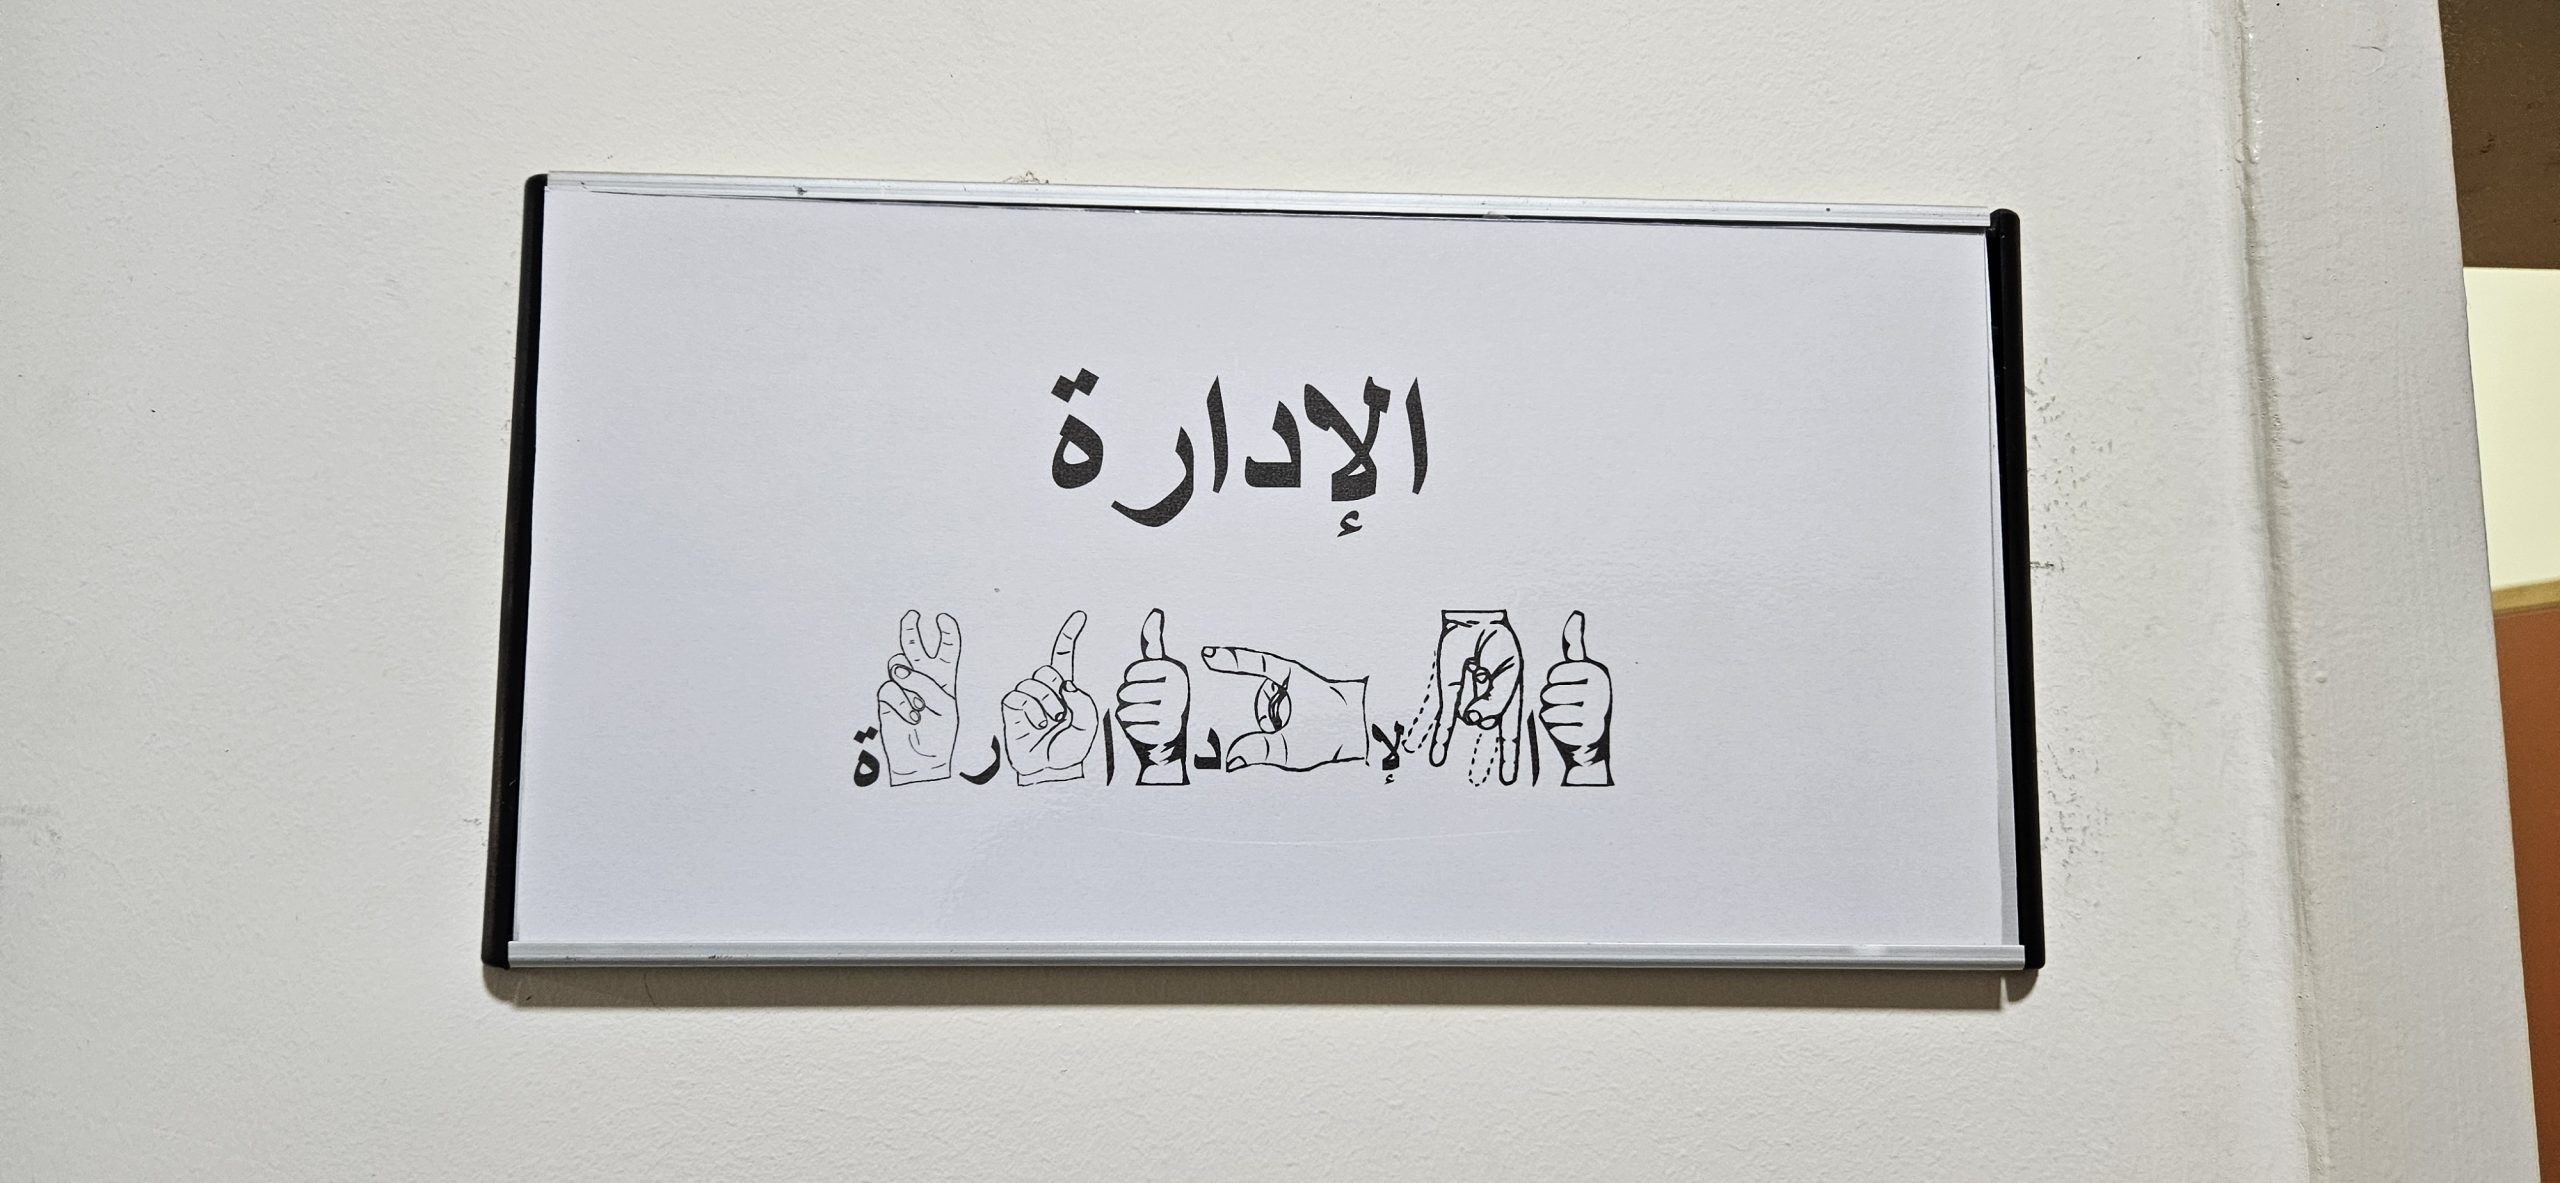 الإدارة
ا لإ د ا ر ة